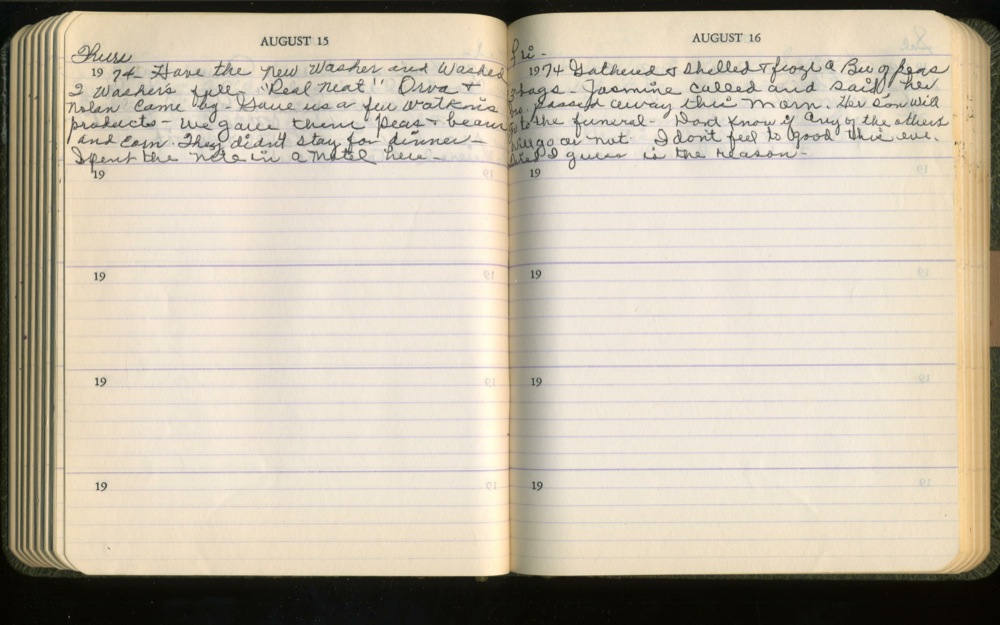 AUGUST 15
Thurs
1974 Have the new Washer and Washed
2 Washer's full. "Real Neat" Orva &
Nolan Came by - Gave us a few Watkins
products - We gave them Peas & beans
and Corn. They didn't stay for dinner -
Spent the nite in a Motel here -
19
19
19
19
AUGUST 16
Fri -
1974 Gathered & Shelled & froze a Bu of Peas
bags - Jasmine called and said, her
Bro. passed away this Morn. Her Son will
go to the funeral - Dont know if any of the others
will go or not I dont feel to good this eve.
tired I guess is the reason -
19
19
19
19